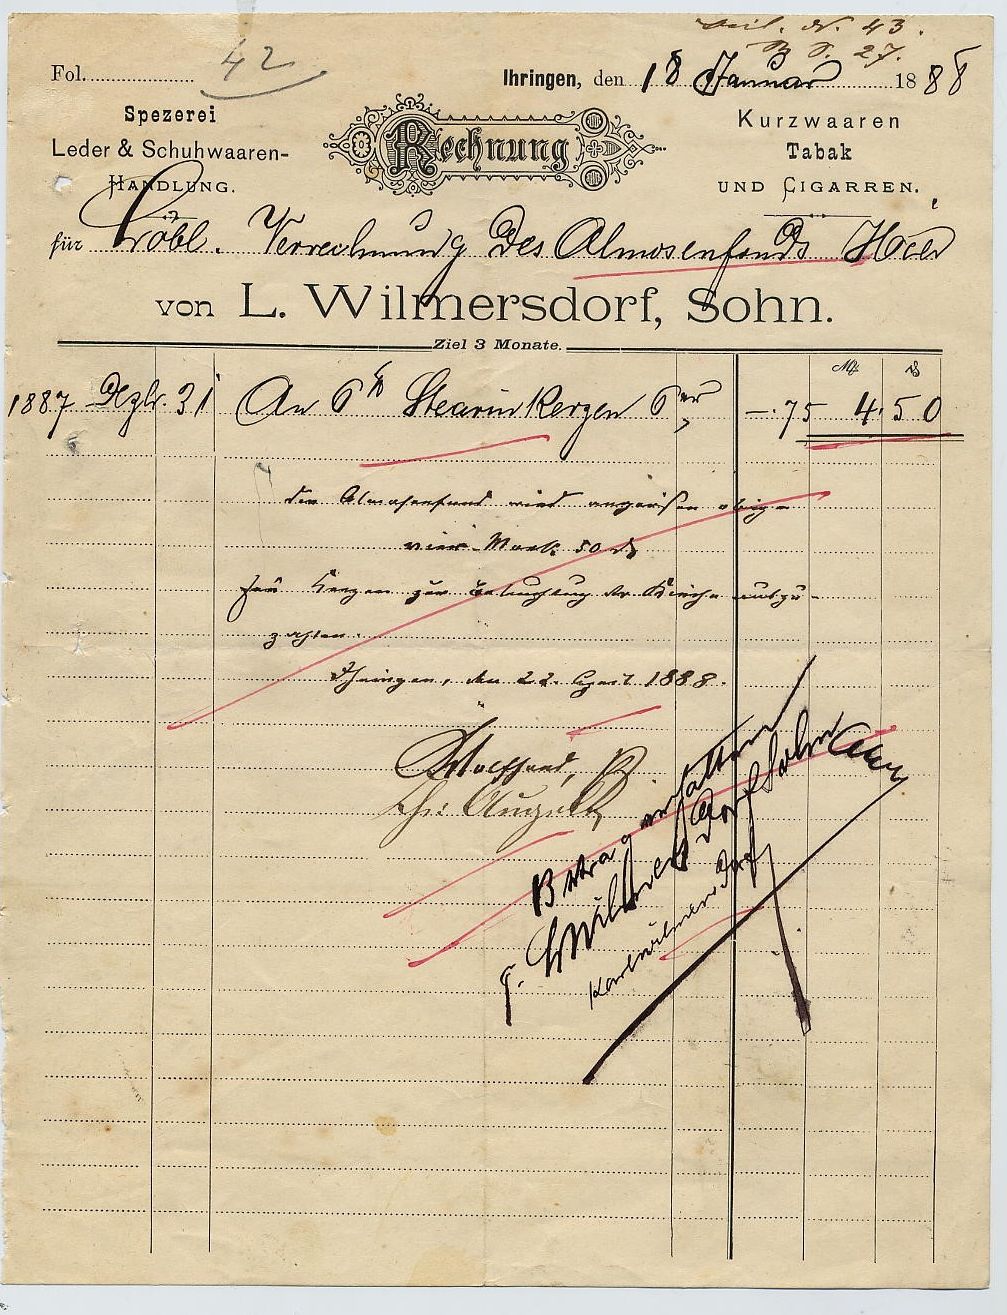 Beil. N. 43.
42
27.
Fol.
Ihringen, den 18 Januar 1888
Spezerei
Leder & Schuhwaaren-
HANDLUNG.
Rechnung
Kurzwaaren
Tabak
UND CIGARREN.
für Löbl. Verrechnung des Almosenfonds Hier
von L. Wilmersdorf, Sohn.
Ziel 3 Monate.
1887 Dezbr. 31 An 6 Stearin Kerzen 6er —.75 4.50
Der Almosenfond wird angewiesen obige
vier Mark 50 ₰
für Kerzen zur Beleuchtung der Kirche auszu-
zahlen.
Ihringen, den 22. April 1888.
Betrag erhalten
L. Wilmersdorf Sohn
Karl Wilmersdorf